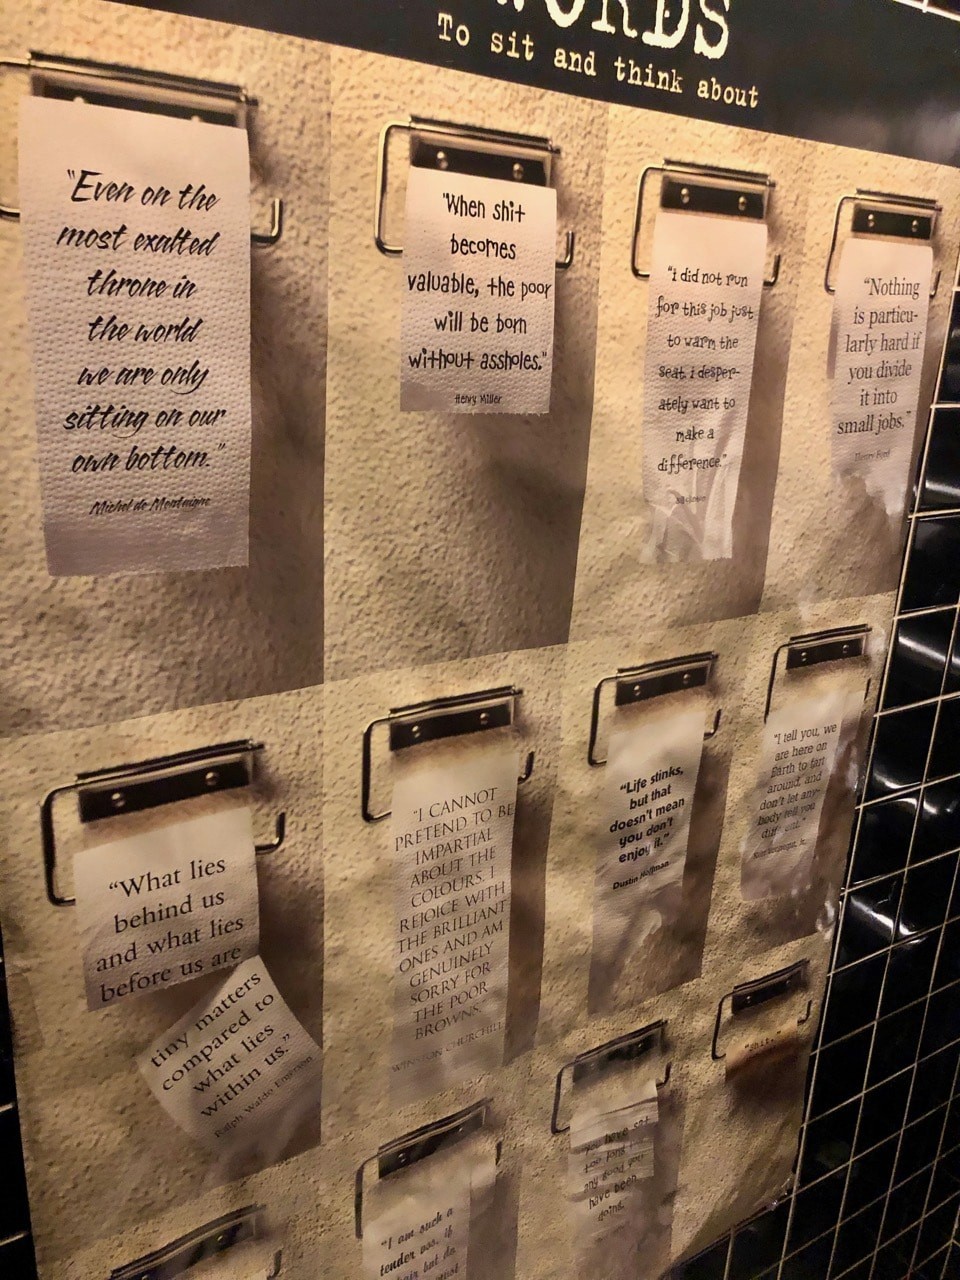 WORDS
To sit and think about
"Even on the
most exalted
throne in
the world
we are only
sitting on our
own bottom."
Michel de Montaigne
"When shit
becomes
valuable, the poor
will be born
without assholes."
Henry Miller
"i did not run
for this job just
to warm the
seat. i desper-
ately want to
make a
difference."
"Nothing
is particu-
larly hard if
you divide
it into
small jobs."
Henry Ford
"What lies
behind us
and what lies
before us are
tiny matters
compared to
what lies
within us."
Ralph Waldo Emerson
"I CANNOT
PRETEND TO BE
IMPARTIAL
ABOUT THE
COLOURS. I
REJOICE WITH
THE BRILLIANT
ONES AND AM
GENUINELY
SORRY FOR
THE POOR
BROWNS."
WINSTON CHURCHILL
"Life stinks,
but that
doesn't mean
you don't
enjoy it."
Dustin Hoffman
"I tell you, we
are here on
Earth to fart
around, and
don't let any-
body tell you
"I am such a
tender ass, if
hair but do
"You have sat
too long
any good you
have been
doing.
"shit."